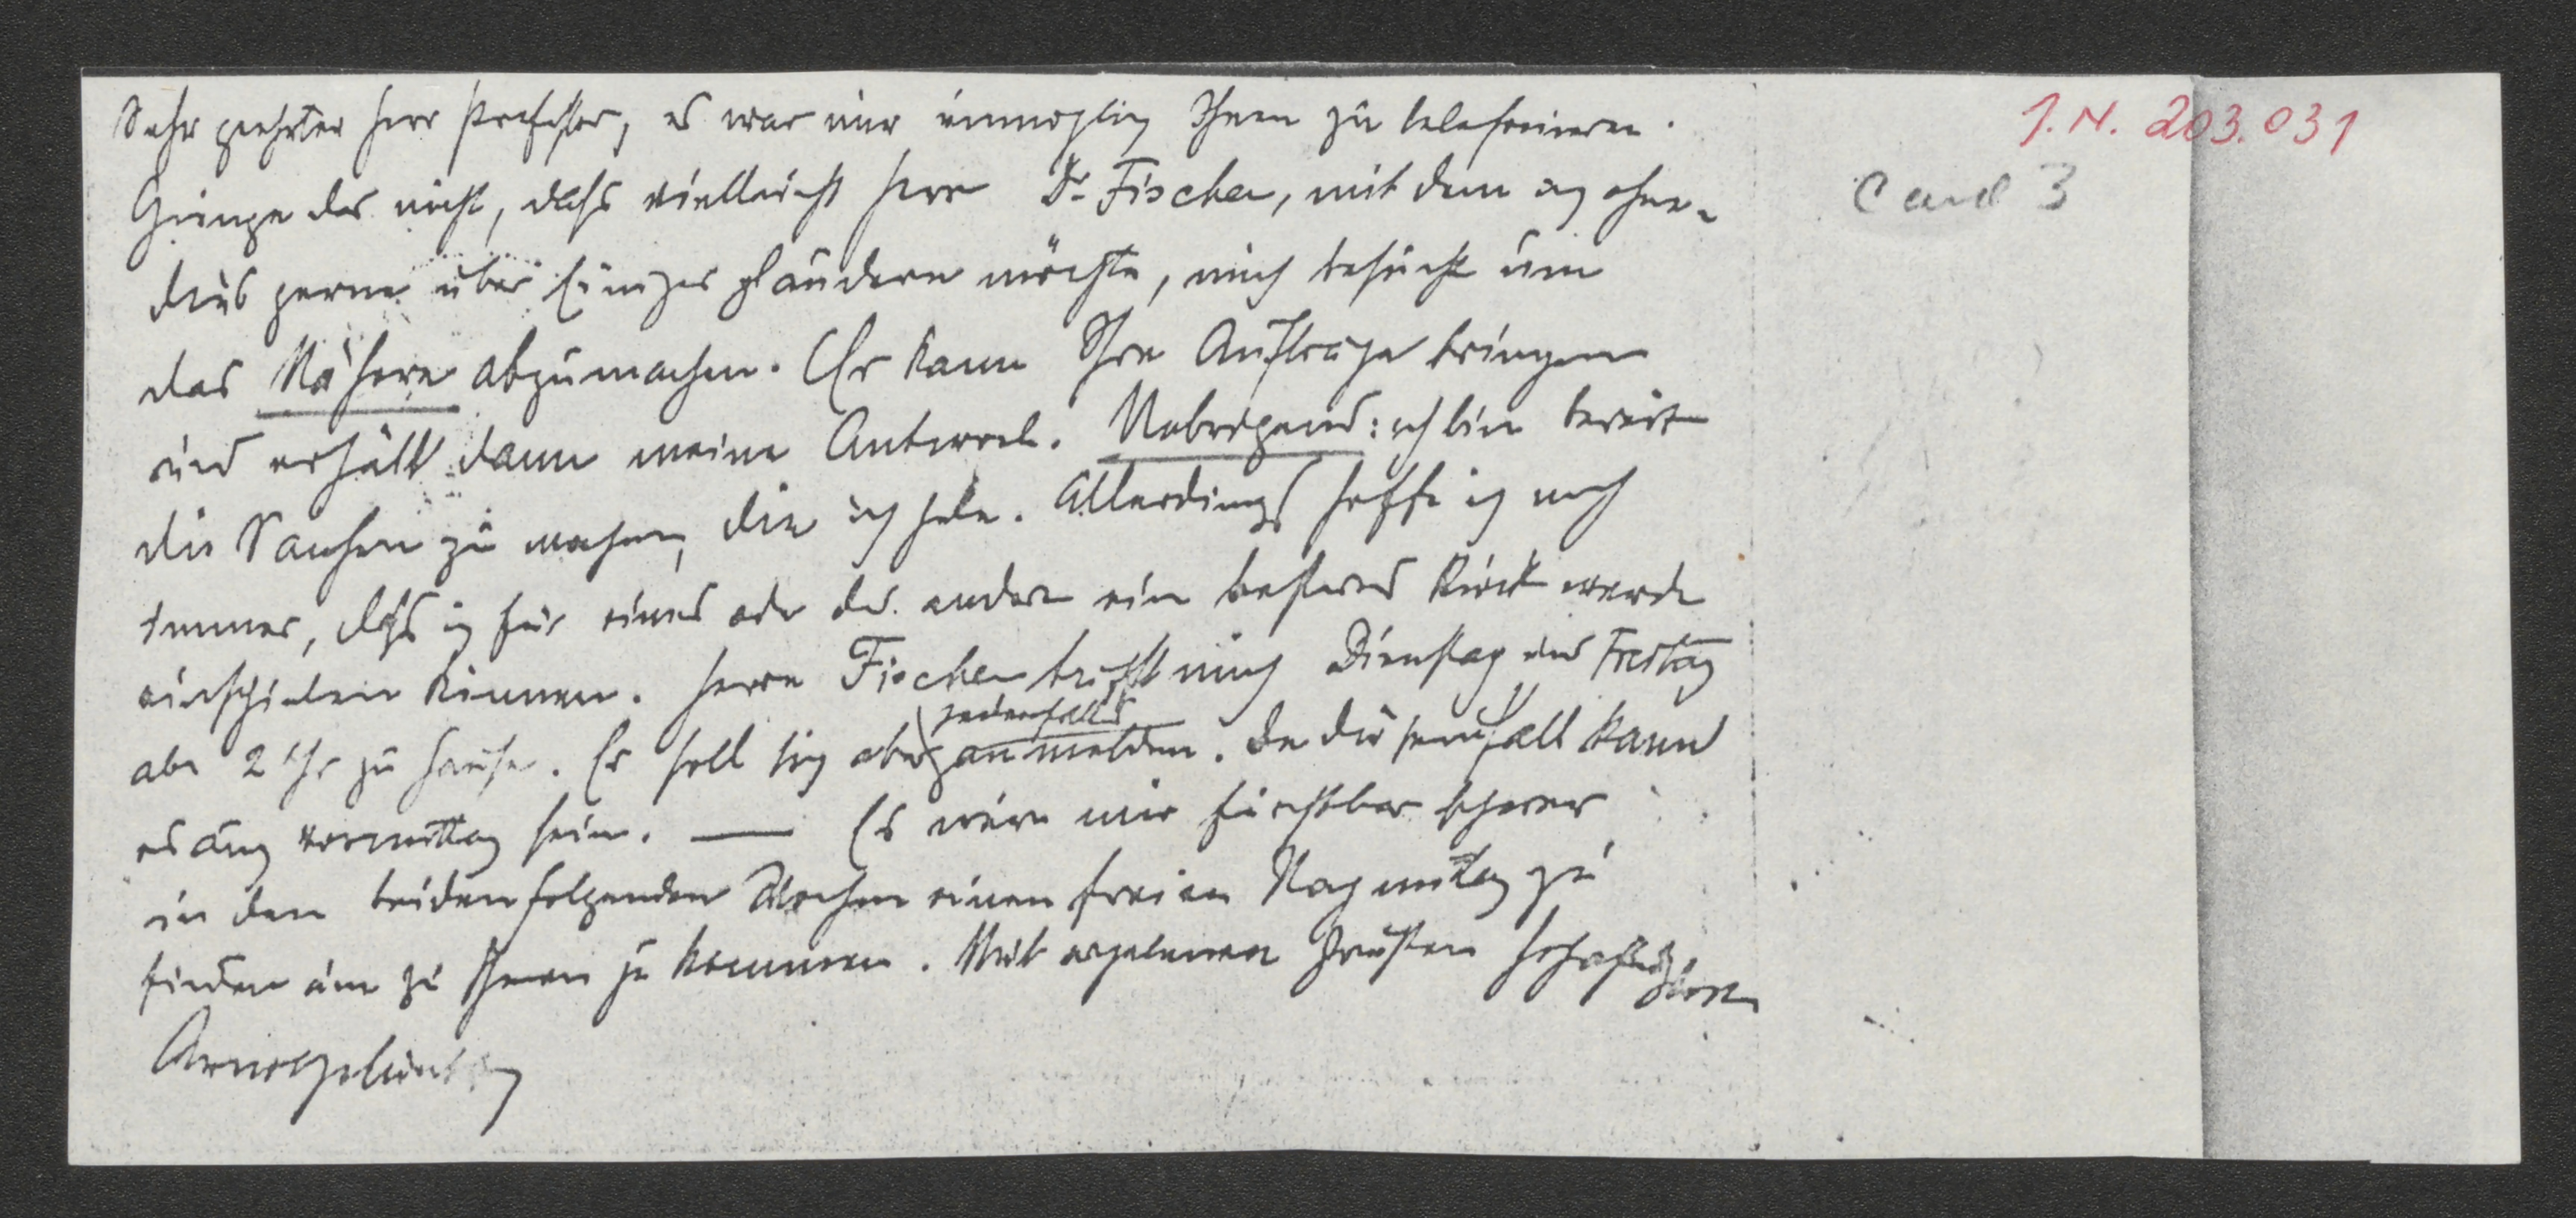 Sehr geehrter Herr Professor, es war mir unmöglich Ihnen zu telefonieren.
Ginge das nicht, dass vielleicht Herr Dr Fischer, mit dem ich ohne-
dies gerne über Einiges plaudern möchte, mich besucht um
das Nähere abzumachen. Er kann Ihre Aufträge bringen
und erhält dann meine Antwort. Uebrigens: ich bin bereit
die Sachen zu machen, die ich habe. Allerdings hoffe ich noch
immer, dass ich für eines oder das andere ein besseres Stück werde
einschieben können. Herr Fischer trifft mich Dienstag und Freitag
aber 2 Uhr zu Hause. Er soll sich aber jedenfalls anmelden. In diesem Fall kann
es auch vormittag sein. — Es wäre mir furchtbar schwer
in den beiden folgenden Wochen einen freien Nachmittag zu
finden um zu Ihnen zu kommen. Mit ergebenen Grüßen hochachtungsvoll
Arnold Schönberg
J.N. 203.031
Card 3